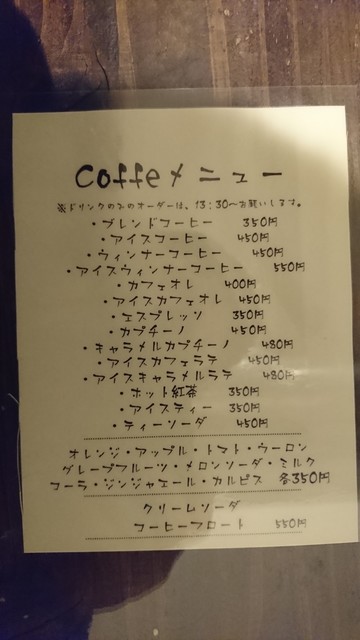 Coffeメニュー
※ドリンクのみのオーダーは、13:30〜お願いします。
・ブレンドコーヒー 350円
・アイスコーヒー 450円
・ウィンナーコーヒー 450円
・アイスウィンナーコーヒー 550円
・カフェオレ 400円
・アイスカフェオレ 450円
・エスプレッソ 350円
・カプチーノ 450円
・キャラメルカプチーノ 480円
・アイスカフェラテ 450円
・アイスキャラメルラテ 480円
・ホット紅茶 350円
・アイスティー 350円
・ティーソーダ 450円
オレンジ・アップル・トマト・ウーロン
グレープフルーツ・メロンソーダ・ミルク
コーラ・ジンジャエール・カルピス 各350円
クリームソーダ
コーヒーフロート 550円